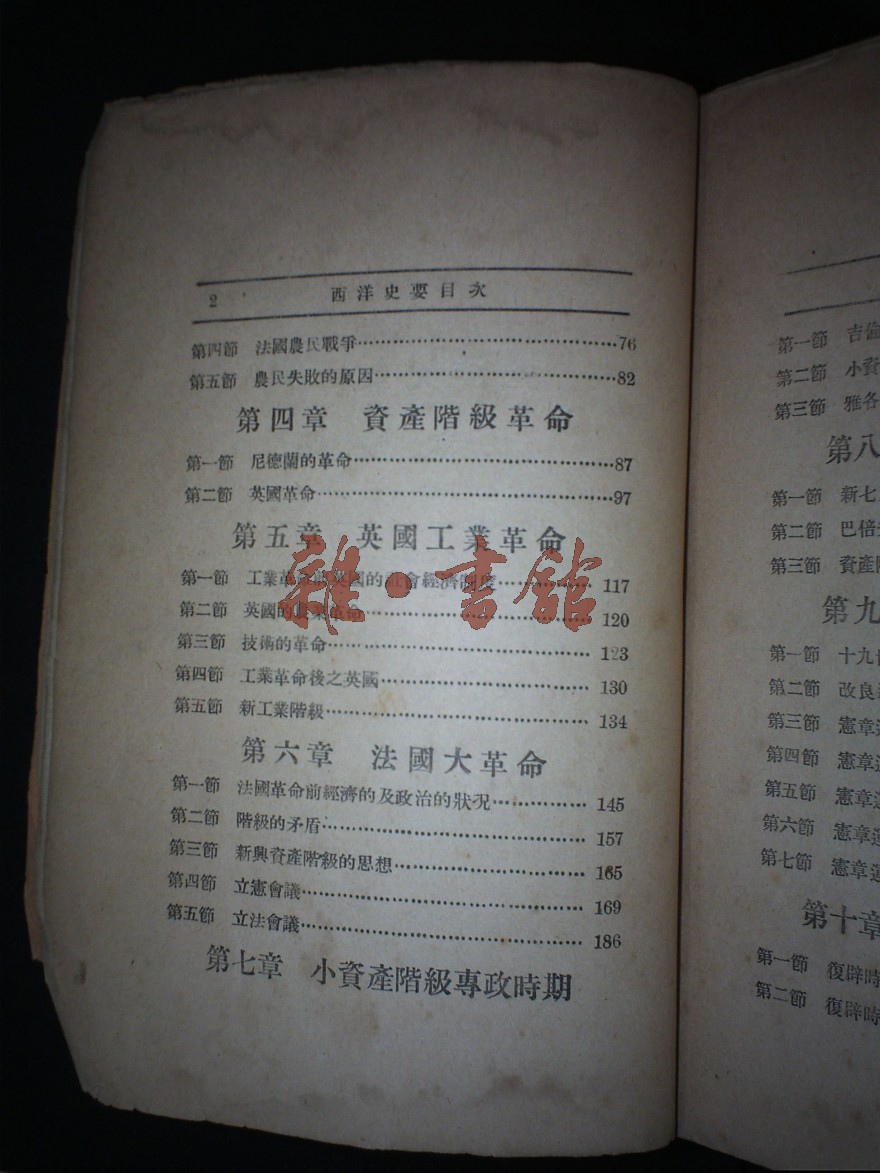 2 西洋史要目次
第四節 法國農民戰爭……76
第五節 農民失敗的原因……82
第四章 資產階級革命
第一節 尼德蘭的革命……87
第二節 英國革命……97
第五章 英國工業革命
第一節 工業革命前英國的社會經濟制度……117
第二節 英國的農業革命……120
第三節 技術的革命……123
第四節 工業革命後之英國……130
第五節 新工業階級……134
第六章 法國大革命
第一節 法國革命前經濟的及政治的狀況……145
第二節 階級的矛盾……157
第三節 新興資產階級的思想……165
第四節 立憲會議……169
第五節 立法會議……186
第七章 小資產階級專政時期
雜·書館
第一節 吉
第二節 小資
第三節 雅各
第八
第一節 新七
第二節 巴倍
第三節 資產
第九
第一節 十九
第二節 改良
第三節 憲章
第四節 憲章
第五節 憲章
第六節 憲章運
第七節 憲章運
第十章
第一節 復辟時
第二節 復辟時